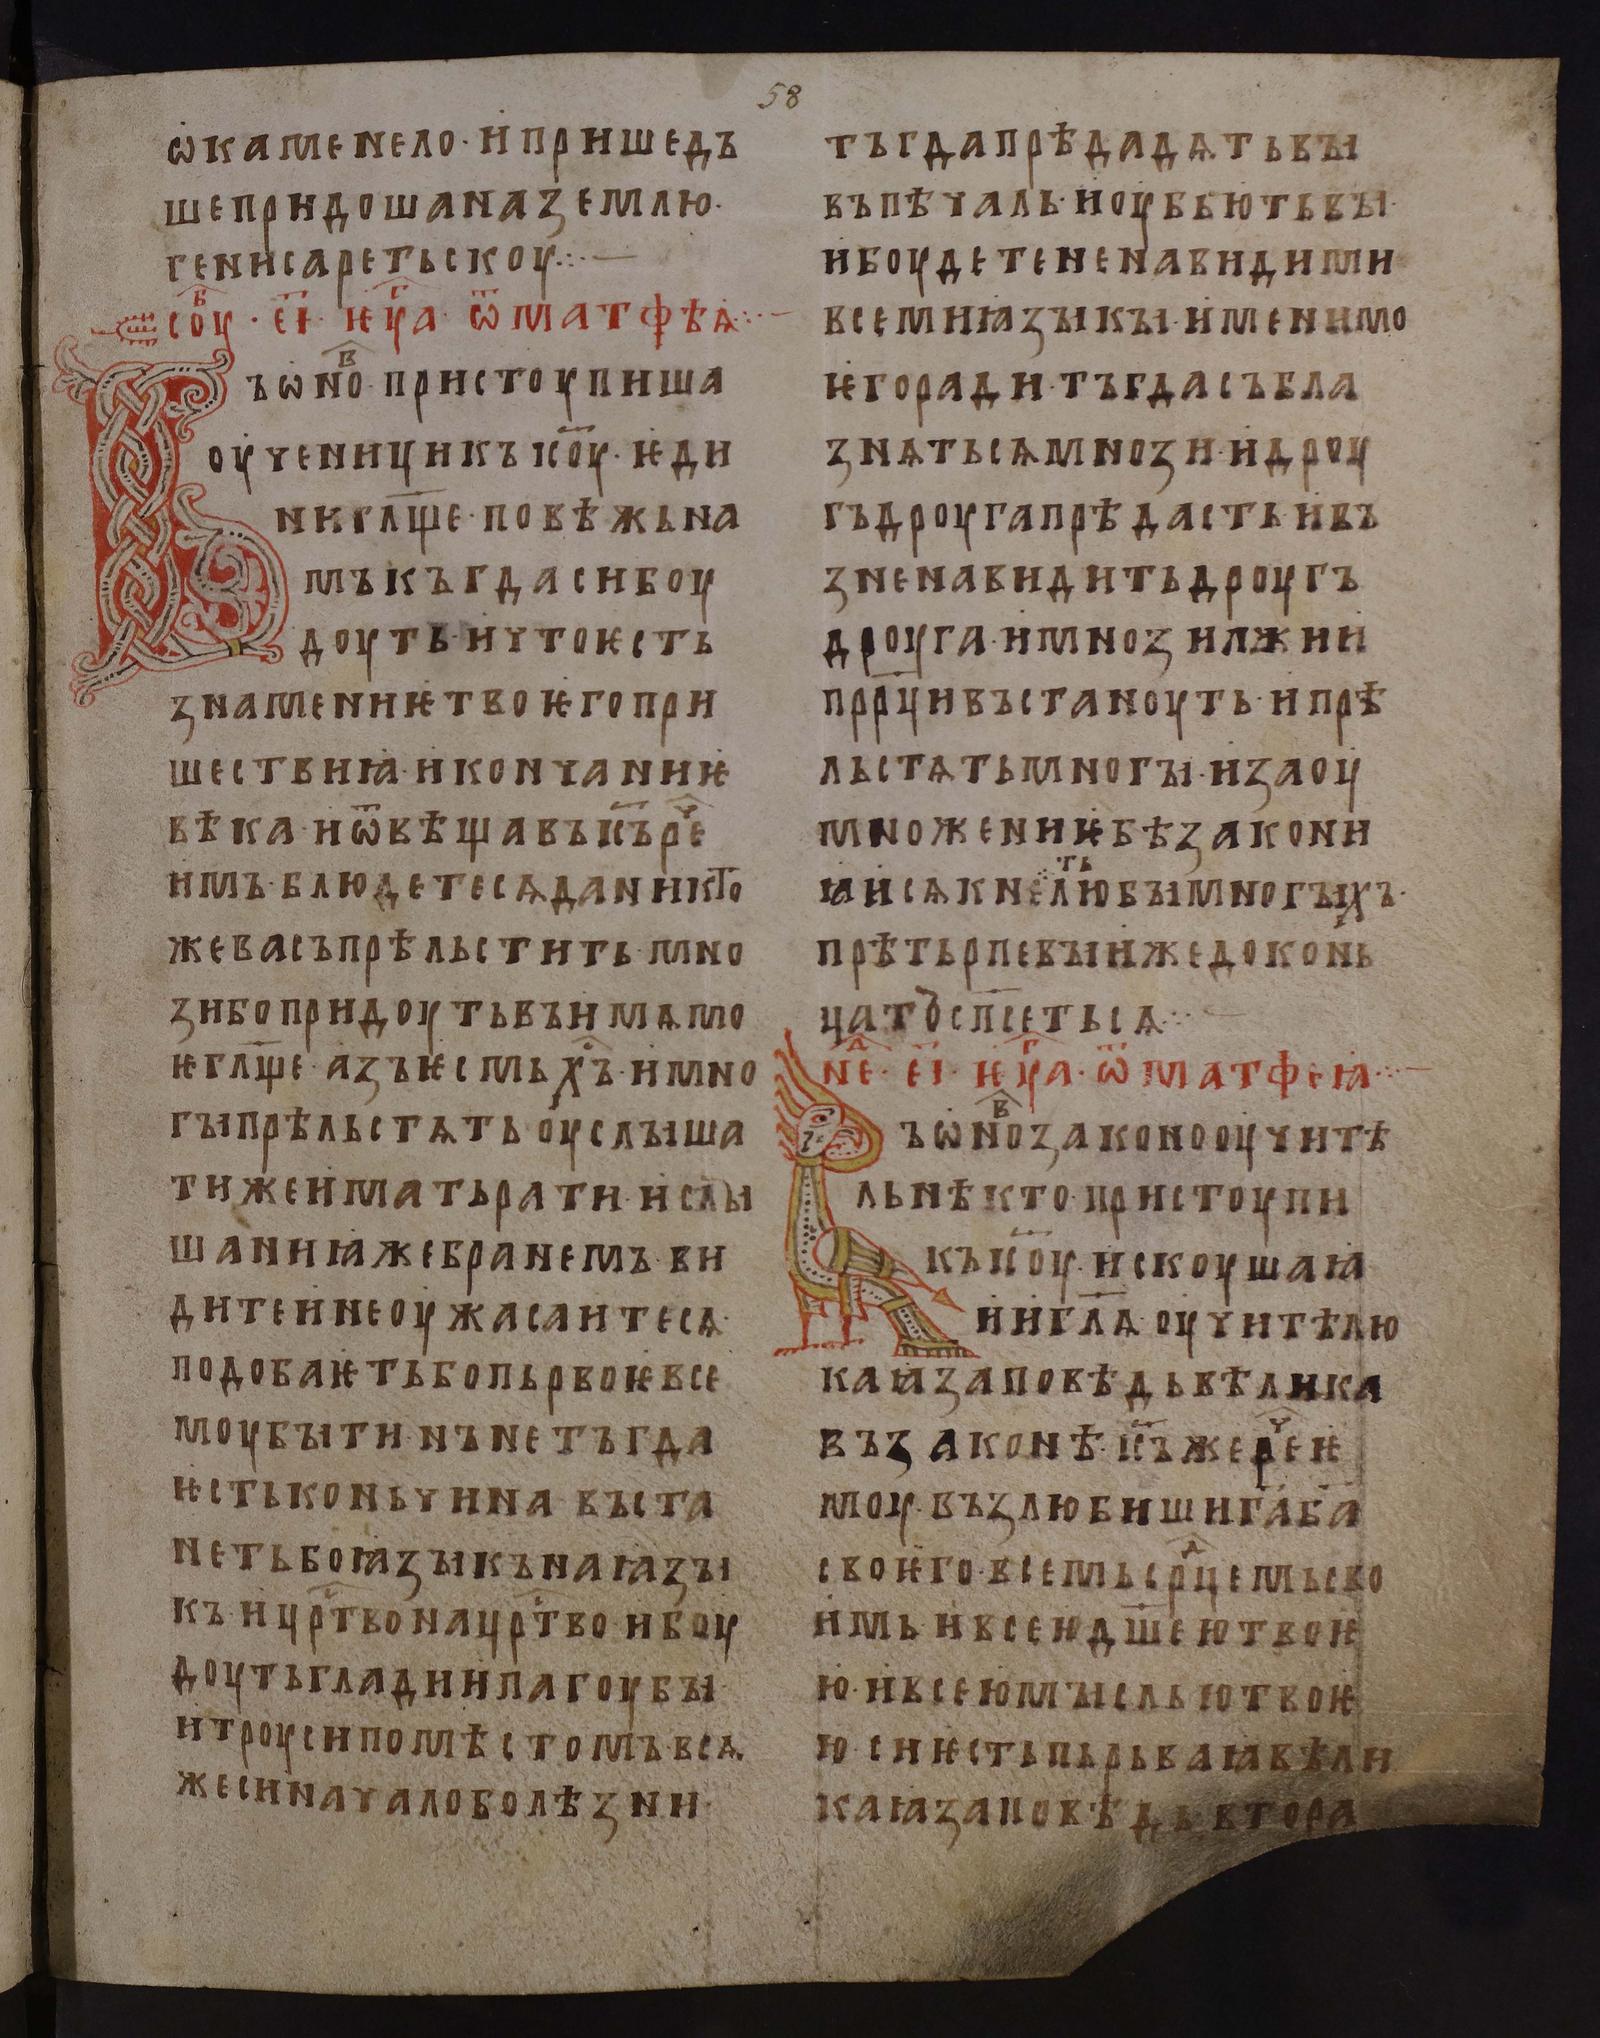 58
ѡкаменело· и пришедъ
шепридошаназемлю·
генисаретьскоу჻—
соуⷠ · е҃і· ѥуⷢ҇а ѿматфѣѧ჻—
ъѡноⷡ· пристоупиша
оученицикъ іс҃оу· ѥди
нигл҃ще· повѣжьна
мъкъгдасибоу
доуть· ичтоѥсть
знамениѥтвоѥгопри
шествиꙗ· икончаниѥ
вѣка· иѿвѣщавъіс҃ъреⷱ҇
имъ· блюдетесѧданикто
жевасъпрѣльстить· мно
зибопридоутьвъимѧмо
ѥгл҃ще· азъѥсмьх҃ъ· имно
гыпрѣльстѧть оуслыша
тижеиматьрати· ислы
шаниꙗжебранемъ· ви
дитеинеоужасаитесѧ·
подобаѥтьбопьрвоѥвсе
моубыти· нъ нетъгда
ѥстьконьчина въста
нетьбоꙗзыкънаꙗзы
къ· ицрⷭ҇твонацрⷭ҇тво· ибоу
доутьгладиипагоубы·
итроусипомѣстомъ· всѧ
жесиначалоболѣзни·
тъгдапрѣдадѧтьвы
въпѣчаль· иоубьютьвы·
ибоудетененавидими
всемиꙗзыкы· именимо
ѥгоради· тъгдасъбла
знѧтьсѧмнози· идроу
гъдроугапрѣдасть· ивъ
зненавидитьдроугъ
дроуга· имнозилжии
прр҃цивъстаноуть· ипрѣ
льстѧтьмногы· изаоу
множениѥбѣзакони
ꙗисѧкнетьлюбымногыхъ·
прѣтьрпевыижедоконь
цатъсп҃сетьсѧ჻
неⷣ· е҃і· ѥуⷢ҇а· ѿматфеꙗ჻—
ъѡноⷡзаконооучитѣ
льнѣкто· пристоупи
къіс҃оу· искоушаꙗ
иигл҃ѧ· оучитѣлю
каꙗзаповѣдьвѣлика
възаконѣ· іс҃ъжереⷱ҇ѥ
моу· възлюбишига҃ба҃
своѥго· всемьсрⷣцемьсво
имь· ивсеюдш҃еютвоѥ
ю· ивсеюмысльютвоѥ
ю· сиѥстьпьрьваꙗвѣли
каꙗзаповѣдь втора